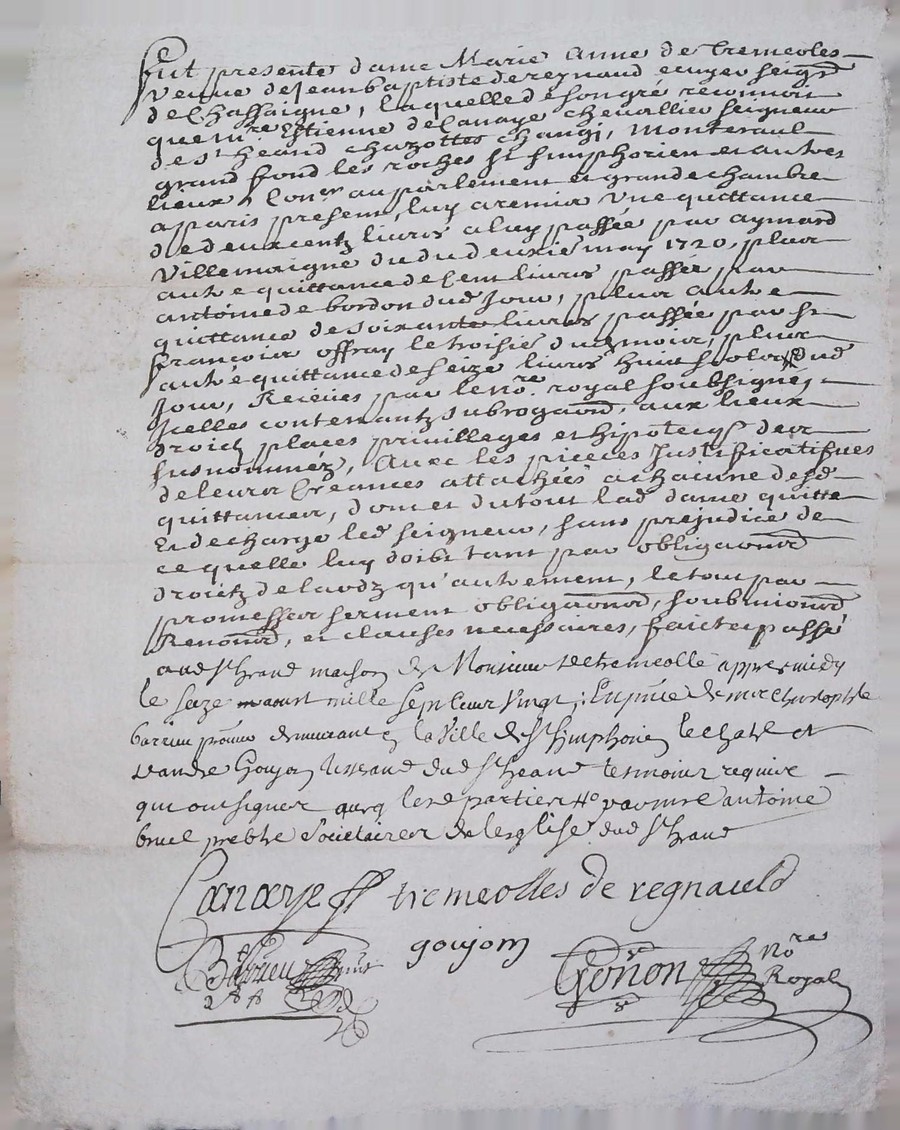 Fut presente dame Marie Anne de tremeoles
veuve de Jean baptiste de regnaud ecuyer seigr
de Chassaigne, laquelle de son gré reconnoit
que mre Estienne de Canaye chevallier seigneur
de st heand chazottes changi, monteraul
grand fond les roches st simphorien et autres
lieux, Conser au parlement et grande chambre
a paris present, luy a remis une quittance
de deux centz livres a luy passée par aymard
Villemaigne du deuxie may 1720, plus
autre quittance de Cent livres passée par
antoine de bordon dud Jour, plus autre
quittance de soixante livres passée par sr
francois offray le troisie du mois, plus
autre quittance de seize livres huit sols dud
Jour, Receues par le nore royal soubsigné,
Icelles contenantz subrogaons, aux lieux
droictz places privilleges et hipotecqs des
susnommez, Avec les pieces Justificatifves
de leurs Créances attachées a chacune desd
quittances, dont et du tout lad dame quitte
Et decharge led seigneur, sans prejudice de
ce quelle luy doibt tant par obligaons
droictz de laodz qu'autrement, le tout par
promesses serment obligaons, soubmions
Renons, et clauses necessaires, faict et passé
aud st heand maison de Monsieur de tremeolle appres midy
le seze aoust mille sept cent vingt, En pnce de mre Christophle
barrieu demeurant en la Ville de st simphorien le chatel et
d'andre Goujon dud st heand tesmoins requis
qui ont signer avecq lesd parties mre antoine
bruel prebtre Societaire de lesglise dud st heand
Canaye tremeolles de regnauld
Barrieu goujom Gonon Nore
Royal